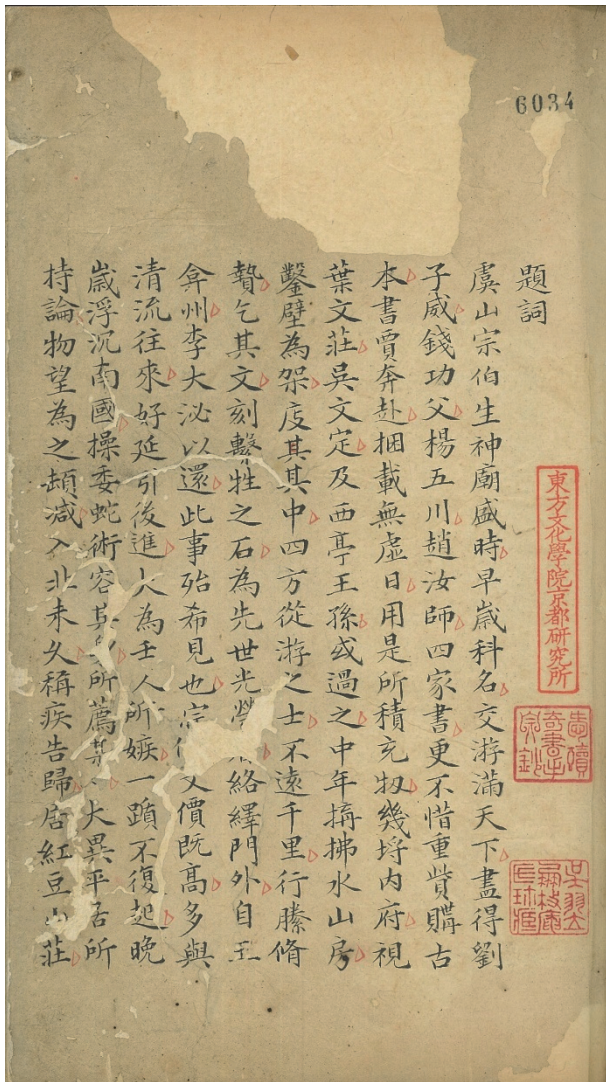 6034
題詞
虞山宗伯生神廟盛時早歲科名交游滿天下盡得劉
子威錢功父楊五川趙汝師四家書更不惜重貲購古
本書賈奔赴捆載無虛日用是所積充牣幾埒内府視
葉文莊吳文定及西亭王孫或過之中年搆拂水山房
鑿壁為架庋其其中四方從游之士不遠千里行縢脩
贄乞其文刻繫牲之石為先世光絡繹門外自王
弇州李大泌以還此事殆希見也宗文價既高多與
清流往來好延引後進大為壬人所嫉一躓不復起晚
歲浮沉南國操委蛇術容其所薦某大異平居所
持論物望為之頓減入北未久稱疾告歸居紅豆山莊
東方文化學院京都研究所